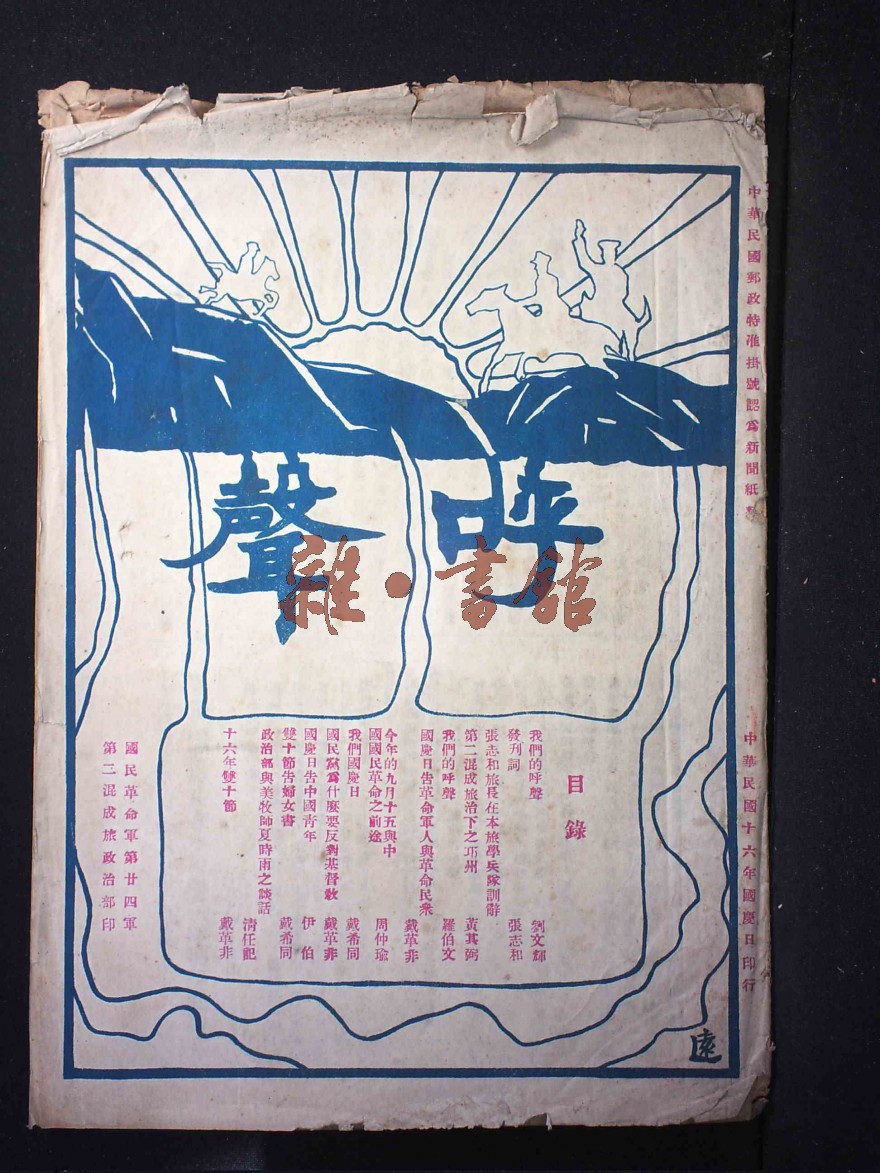 中華民國郵政特准掛號認爲新聞紙類
中華民國十六年國慶日印行
呼聲
雜·書館
目錄
我們的呼聲 劉文輝
發刊詞 張志和
張志和旅長在本旅學兵隊訓辭
第二混成旅治下之邛州 黃其弼
我們的呼聲 羅伯文
國慶日告革命軍人與革命民衆 戴革非
今年的九月十五與中
國國民革命之前途 周仲瑜
我們國慶日 戴希同
國民黨爲什麼要反對基督教 戴革非
國慶日告中國青年 伊伯
雙十節告婦女書 戴希同
政治部與美牧師夏時雨之談話 清任記
十六年雙十節 戴革非
國民革命軍第廿四軍
第二混成旅政治部印
遠